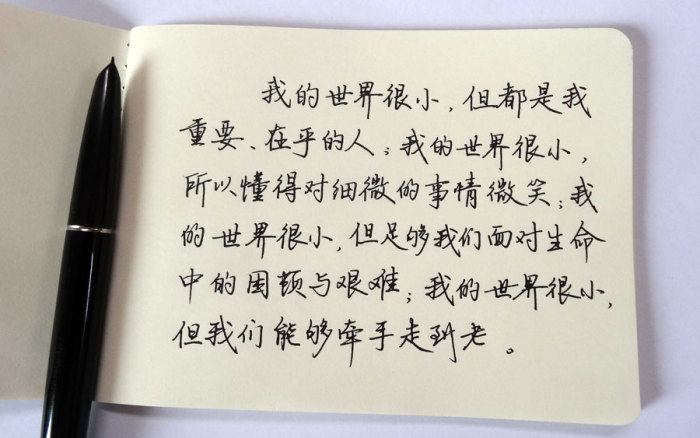 我的世界很小，但都是我
重要、在乎的人；我的世界很小，
所以懂得对细微的事情微笑；我
的世界很小，但足够我们面对生命
中的困顿与艰难；我的世界很小，
但我们能够牵手走到老。